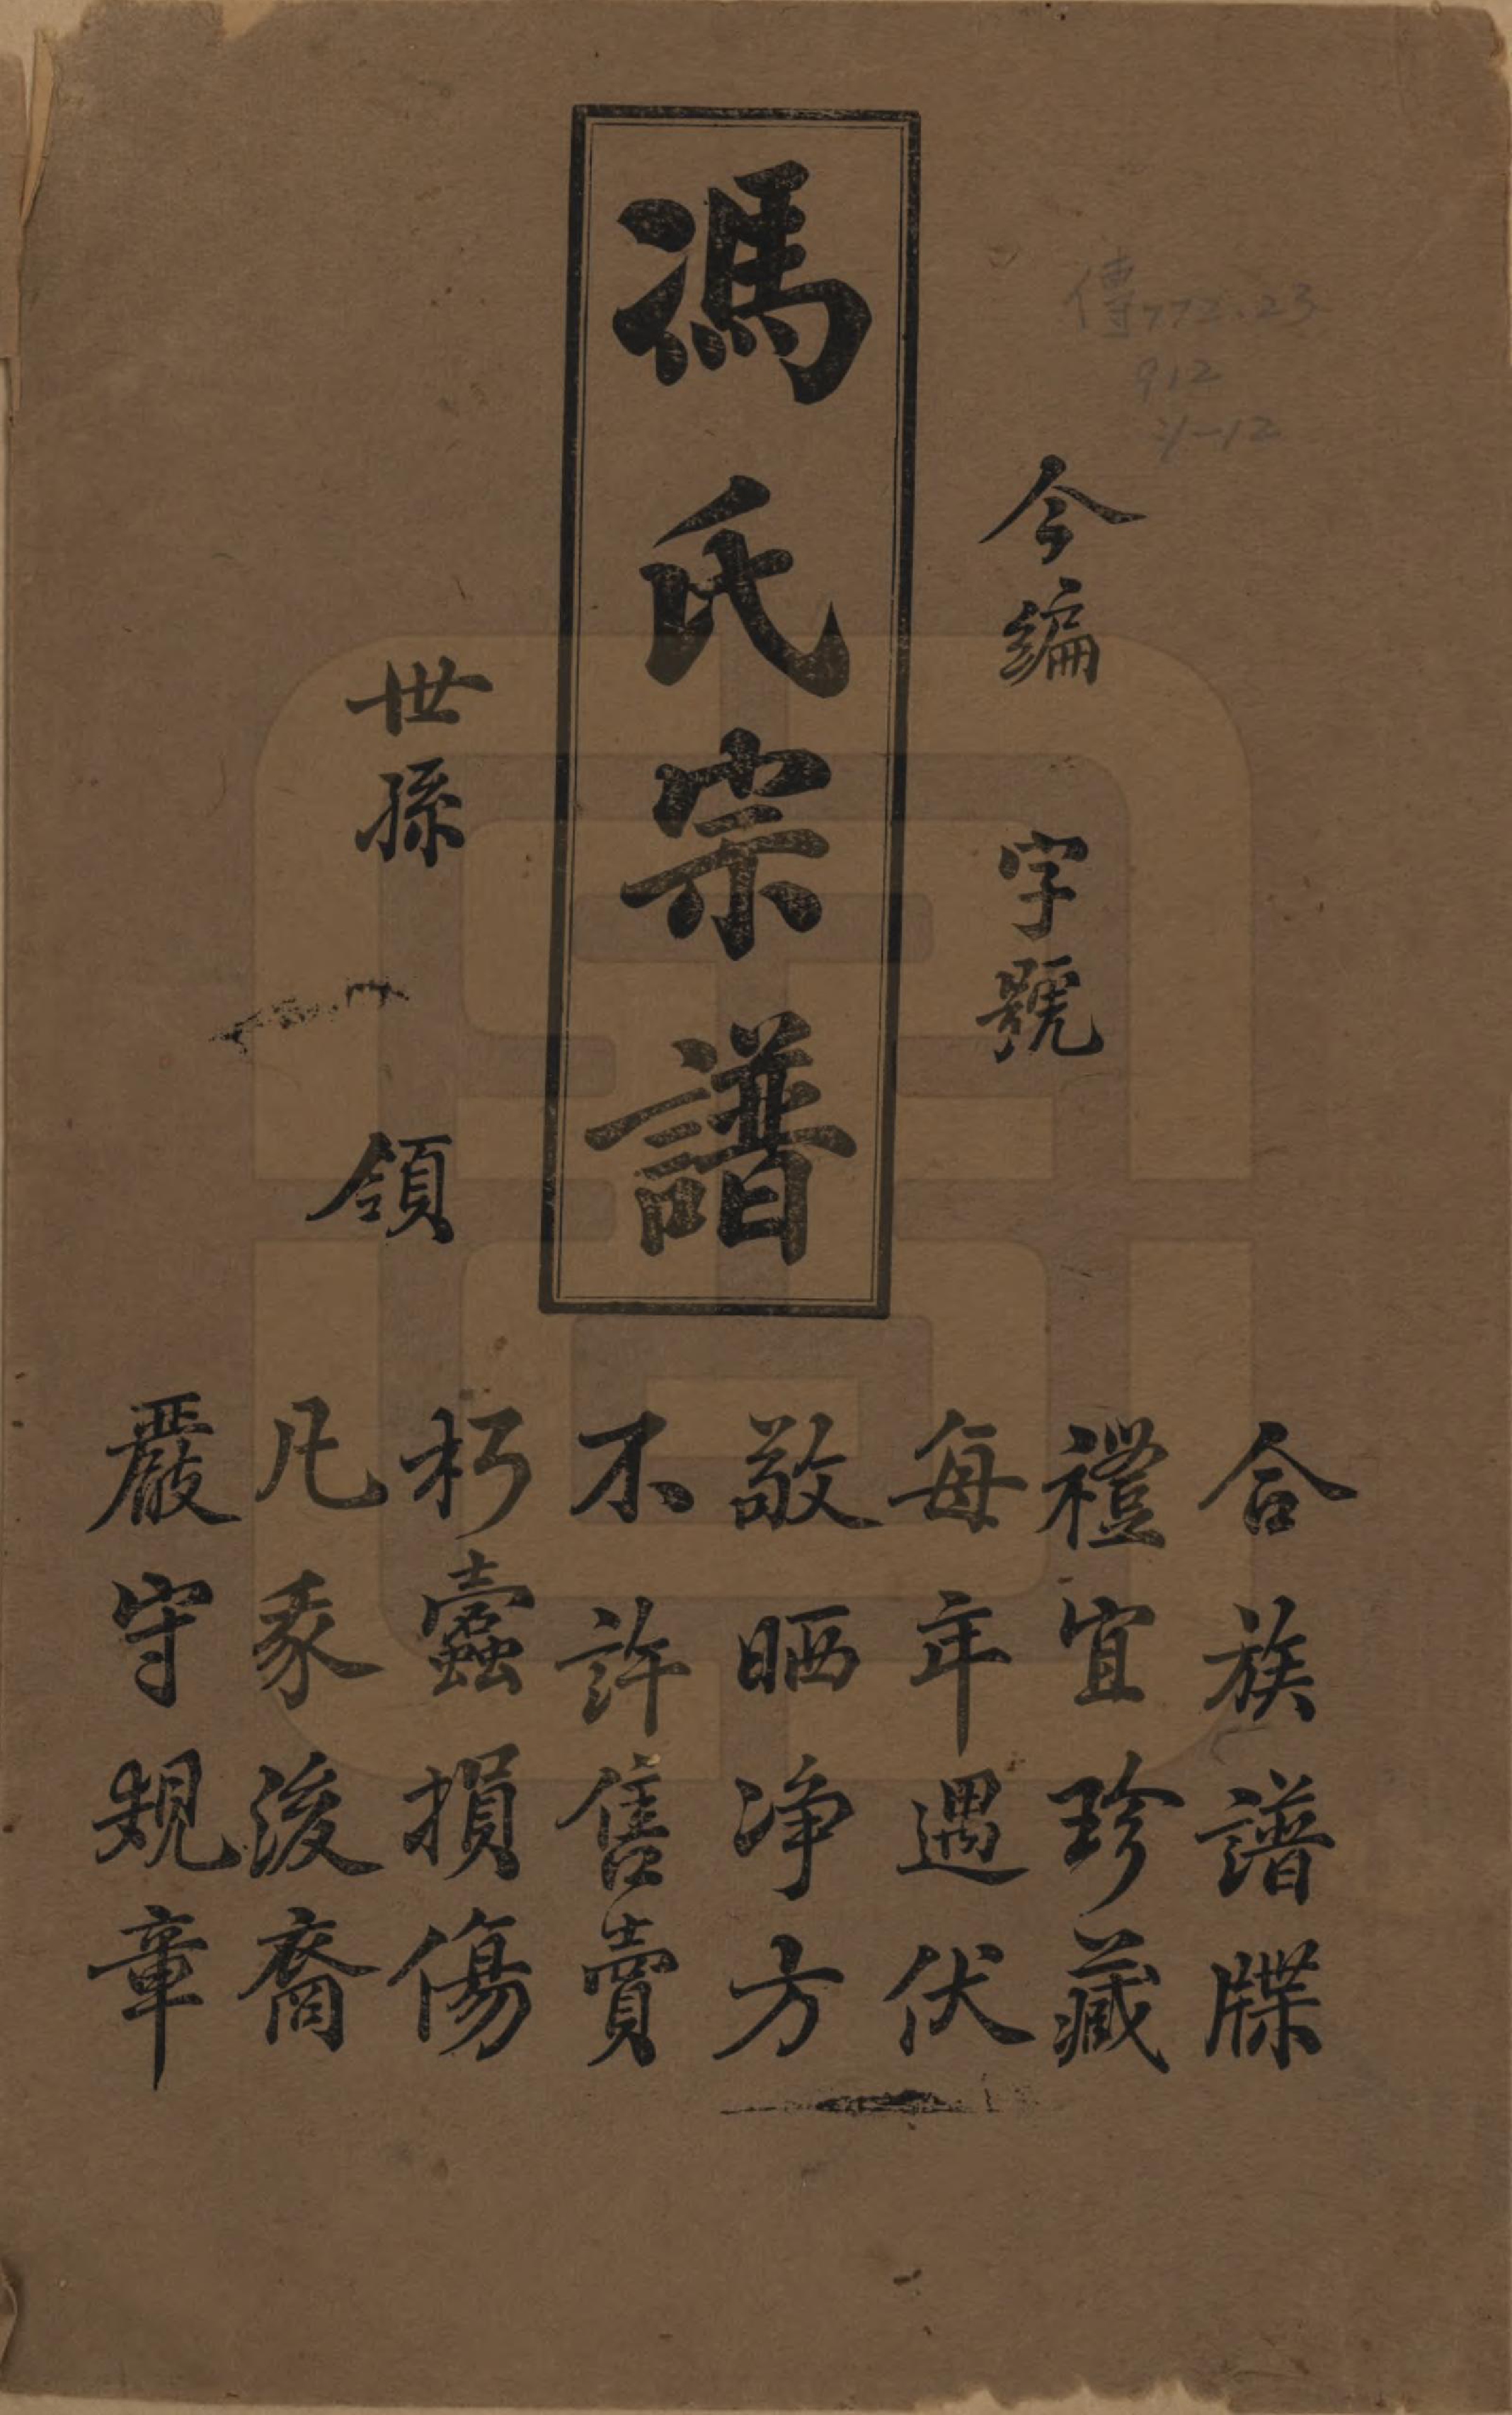 傳772.23
912
:1-12
今編 字號
馮氏宗譜
世孫 領
合族譜牒
禮宜珍藏
每年遇伏
敬晒净方
不許售賣
朽蠹損傷
凡豖後裔
嚴守規章